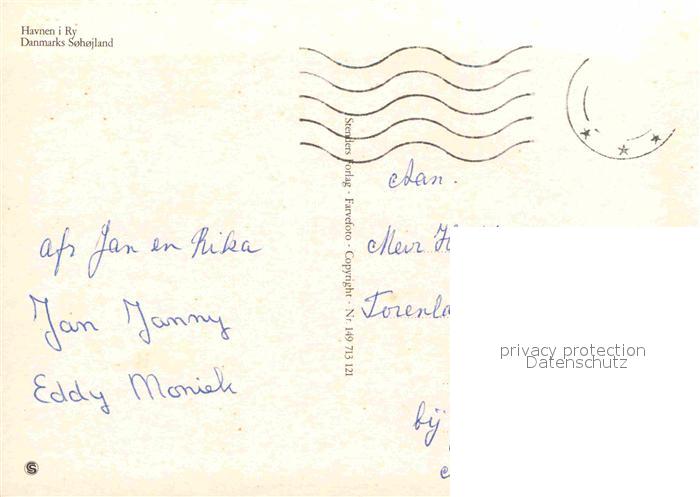 Havnen i Ry
Danmarks Søhøjland
Stenders Forlag · Farvefoto · Copyright · Nr. 149 713 121
Aan.
afs Jan en Rika
Mevr
Jan Janny
Eddy Moniek
bij
privacy protection
Datenschutz
S